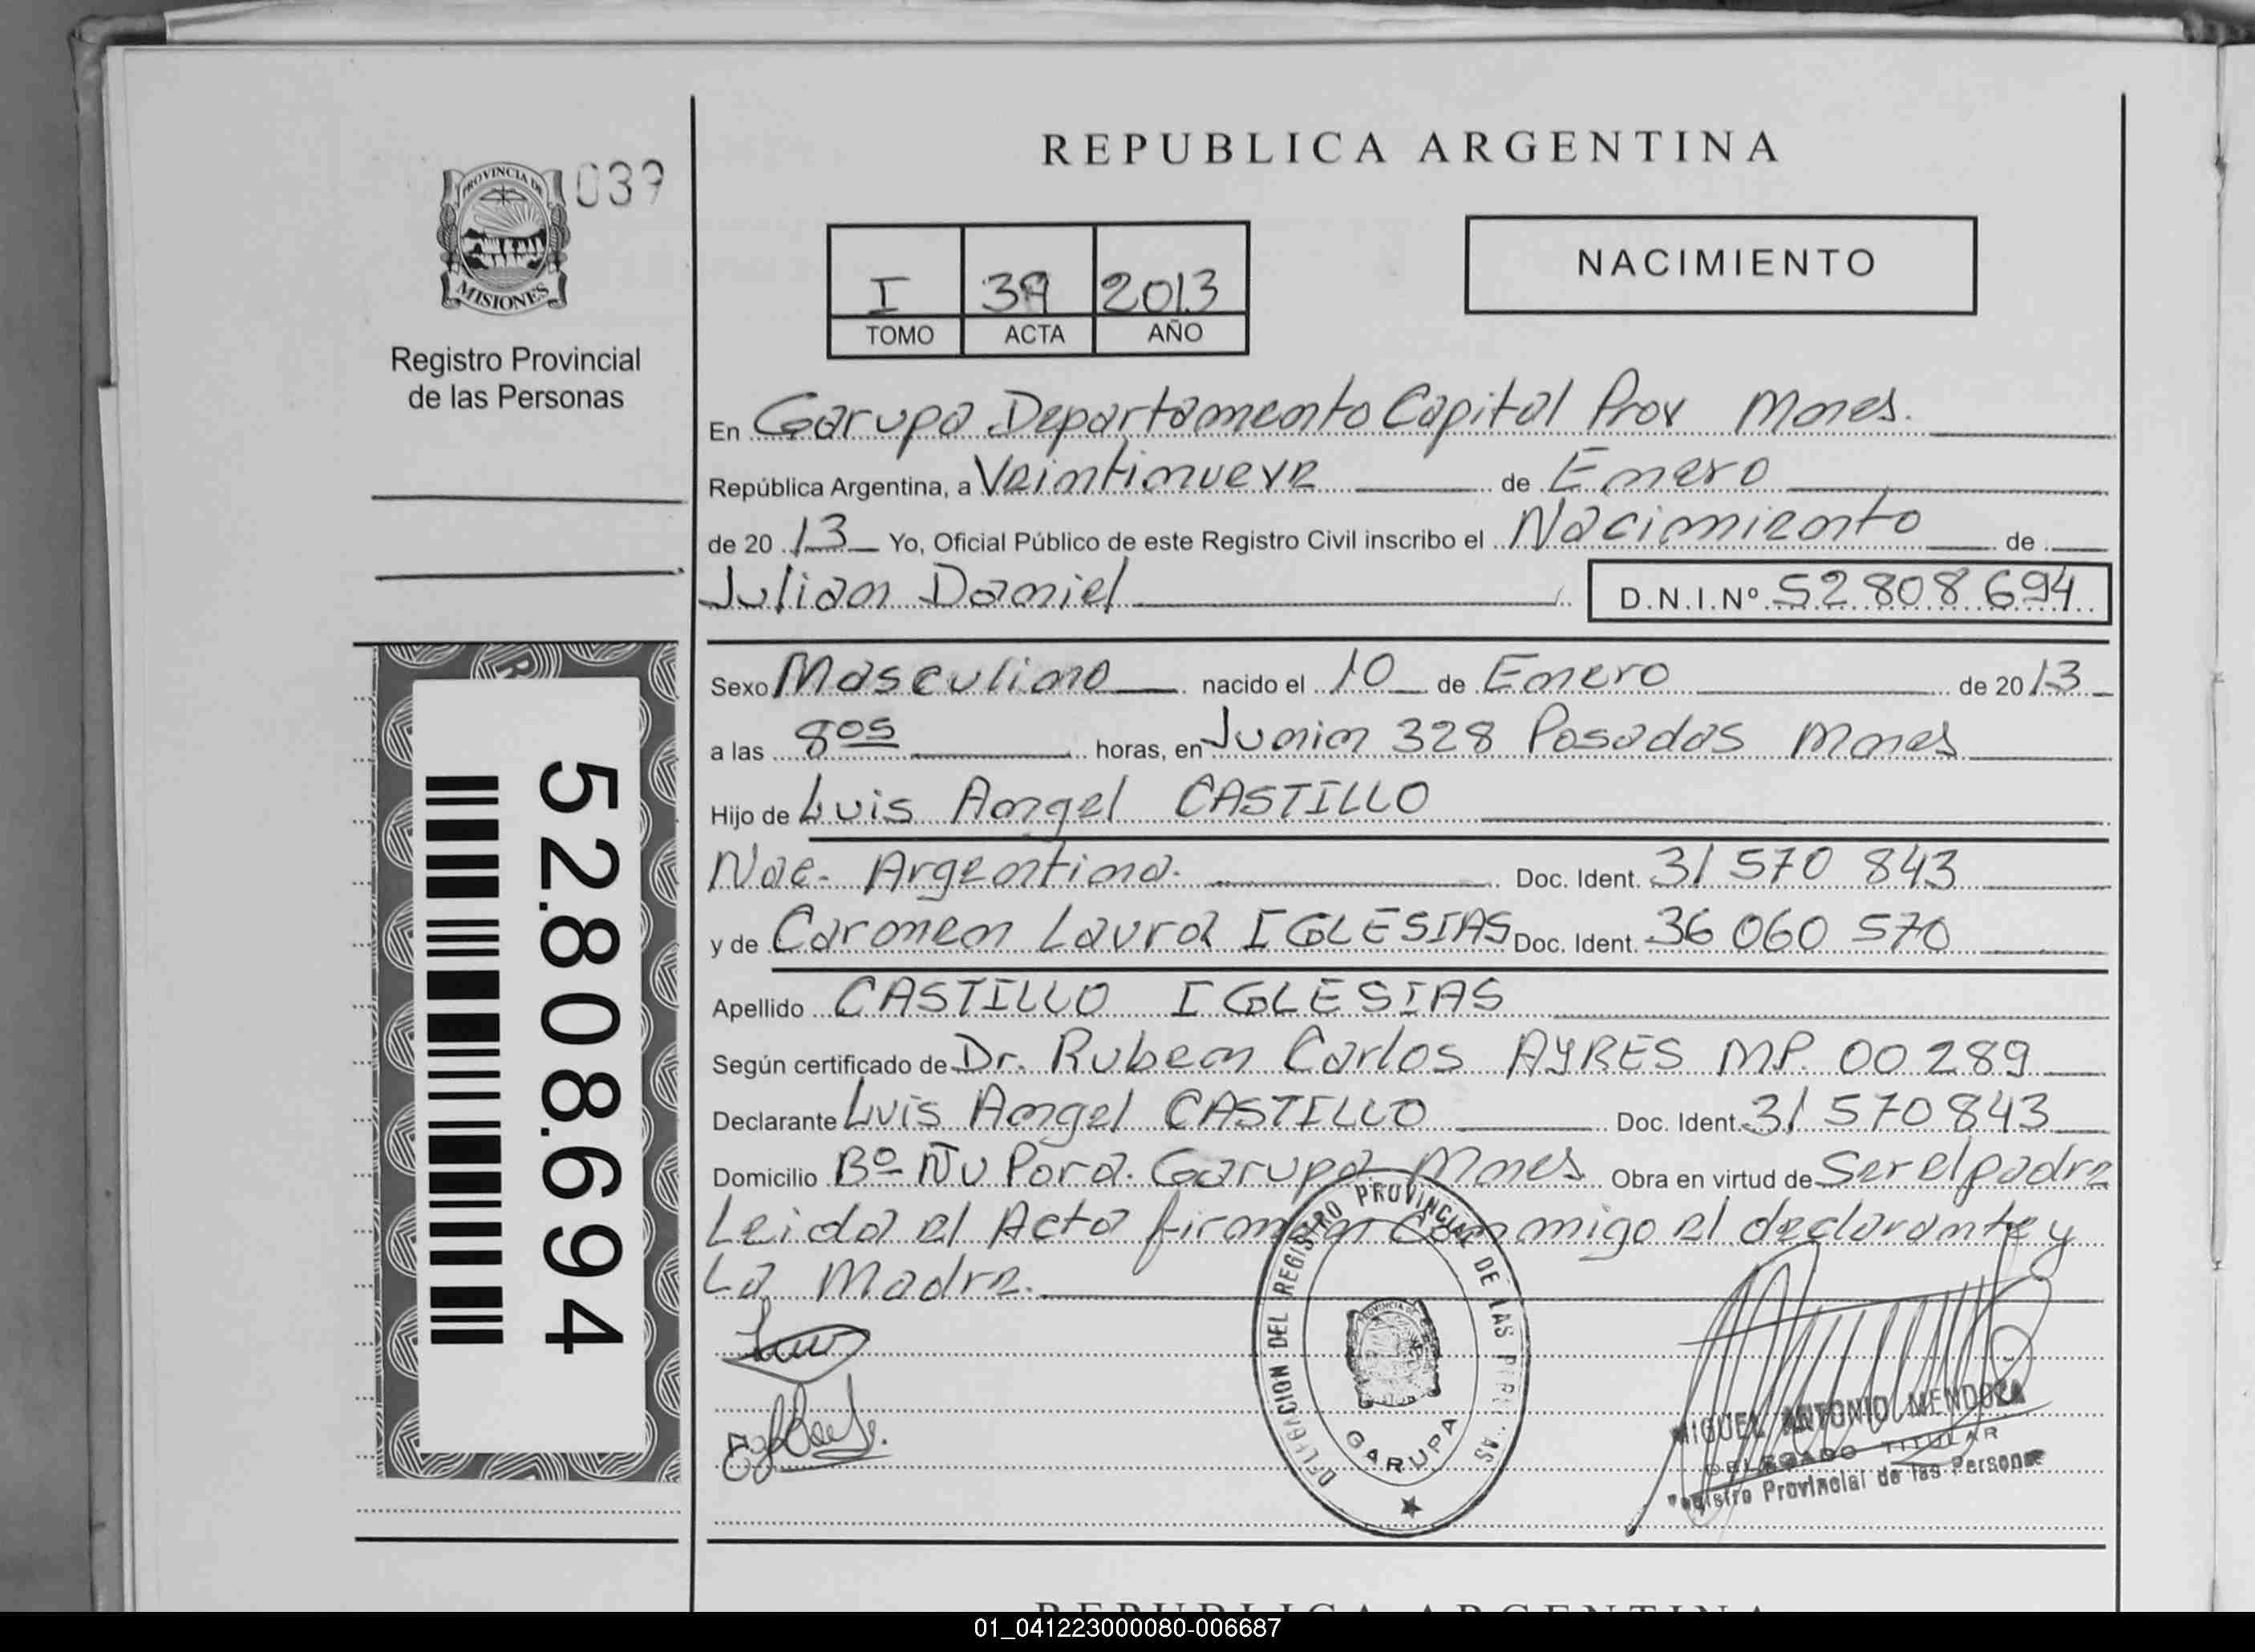 REPUBLICA ARGENTINA
PROVINCIA DE
MISIONES
039
Registro Provincial
de las Personas
52.808.694
I 39 2013
TOMO ACTA AÑO
NACIMIENTO
En Garupa Departamento Capital Prov Mnes.
República Argentina, a Veintinueve de Enero
de 20 13 Yo, Oficial Público de este Registro Civil inscribo el Nacimiento de
Julian Daniel D.N.I.Nº 52 808 694
Sexo Masculino nacido el 10 de Enero de 20 13
a las 8 05 horas, en Junin 328 Posadas Mnes
Hijo de Luis Angel CASTILLO
Nac. Argentina. Doc. Ident. 31 570 843
y de Carmen Laura IGLESIAS Doc. Ident. 36 060 570
Apellido CASTILLO IGLESIAS
Según certificado de Dr. Ruben Carlos AYRES MP. 00289
Declarante Luis Angel CASTILLO Doc. Ident. 31 570 843
Domicilio Bº Ñu Pora. Garupa Mnes Obra en virtud de Ser el padre
Leida el Acta firman Conmigo el declarante y
La Madre.
DELEGACION DEL REGISTRO PROVINCIAL DE LAS PERSONAS
PROVINCIA DE
GARUPA
MIGUEL ANTONIO MENDOZA
DELEGADO TITULAR
Registro Provincial de las Personas
REPUBLICA ARGENTINA
01_041223000080-006687